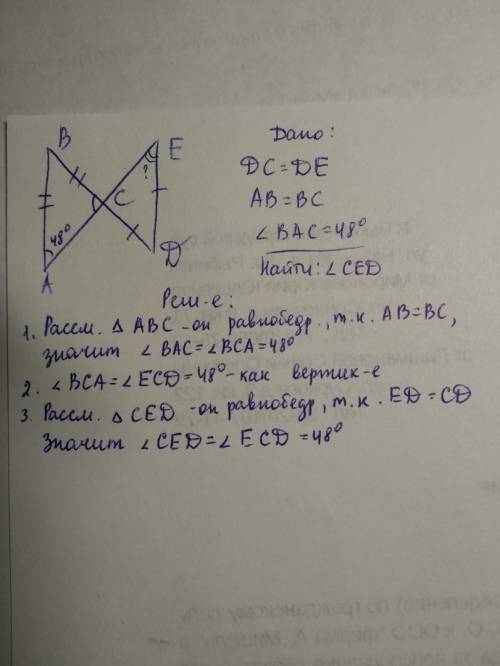 B
E
?
C
48°
A
D
Дано:
DC=DE
AB=BC
∠BAC=48°
Найти: ∠CED
Реш-е:
1. Рассм. △ABC-он равнобедр., т.к. AB=BC,
значит ∠BAC=∠BCA=48°
2. ∠BCA=∠ECD=48°-как вертик-е
3. Рассм. △CED -он равнобедр, т.к. ED=CD
Значит ∠CED=∠ECD=48°